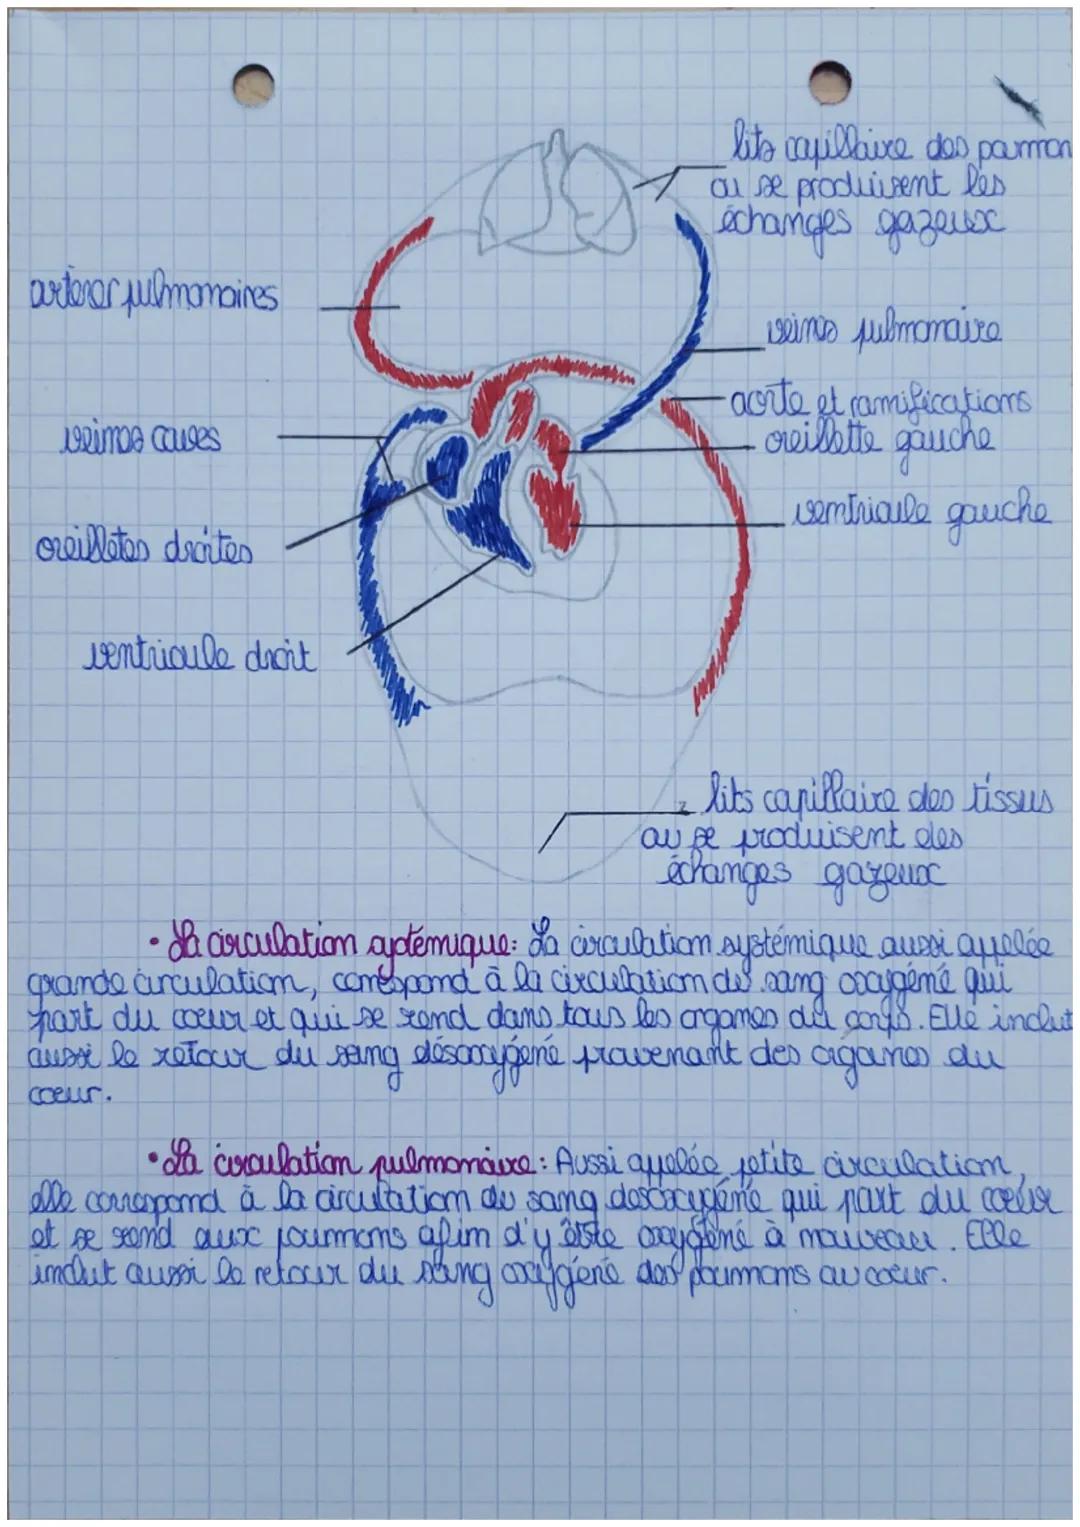 lits capillaire des poumon
ou se produisent les
échanges gazeux
arteres pulmonaires
veines pulmonaire
aorte et ramifications
veines caves
oreillette gauche
ventricule gauche
oreilletes droites
ventricule droit
lits capillaire des tissus
ou se produisent des
échanges gazeux
• La circulation systémique: La circulation systémique aussi appelée
grande circulation, correspond à la circulation du sang oxygéné qui
part du coeur et qui se rend dans tous les organes du corps. Elle inclut
aussi le retour du sang désoxygéné provenant des organes du
coeur.
• La circulation pulmonaire: Aussi appelée petite circulation,
elle correspond à la circulation du sang desoxygéné qui part du coeur
et se rend aux poumons afin d'y être oxygéné à nouveau. Elle
inclut aussi le retour du sang oxygéné des poumons au coeur.